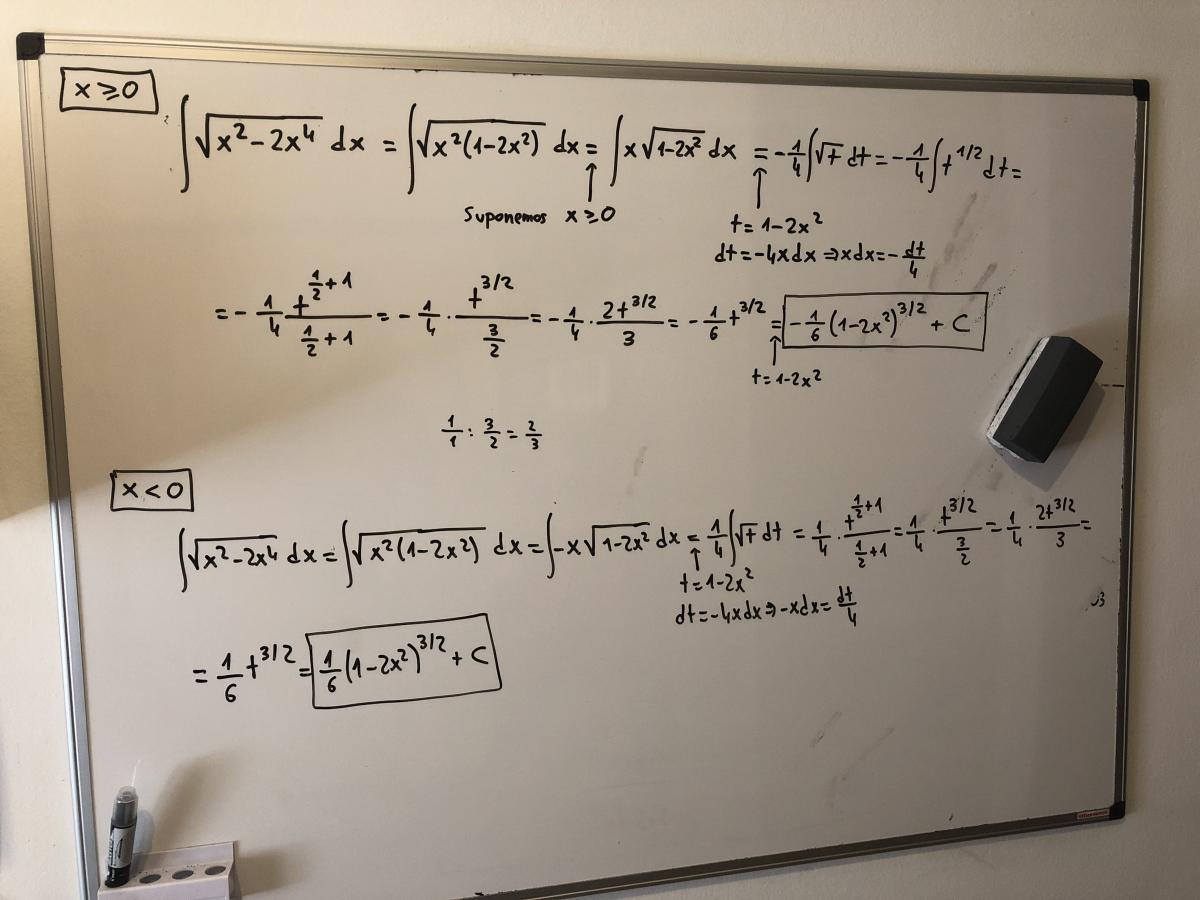 x ≥ 0
∫√(x²-2x⁴) dx = ∫√(x²(1-2x²)) dx = ∫x√(1-2x²) dx = -1/4 ∫√t dt = -1/4 ∫t^(1/2) dt =
Suponemos x ≥ 0
t = 1-2x²
dt = -4xdx ⇒ xdx = -dt/4
= -1/4 t^(1/2+1)/(1/2+1) = -1/4 · t^(3/2)/(3/2) = -1/4 · 2t^(3/2)/3 = -1/6 t^(3/2) = -1/6 (1-2x²)^(3/2) + C
t = 1-2x²
1/1 : 3/2 = 2/3
x < 0
∫√(x²-2x⁴) dx = ∫√(x²(1-2x²)) dx = ∫-x√(1-2x²) dx = 1/4 ∫√t dt = 1/4 · t^(1/2+1)/(1/2+1) = 1/4 · t^(3/2)/(3/2) = 1/4 · 2t^(3/2)/3 =
t = 1-2x²
dt = -4xdx ⇒ -xdx = dt/4
= 1/6 t^(3/2) = 1/6 (1-2x²)^(3/2) + C